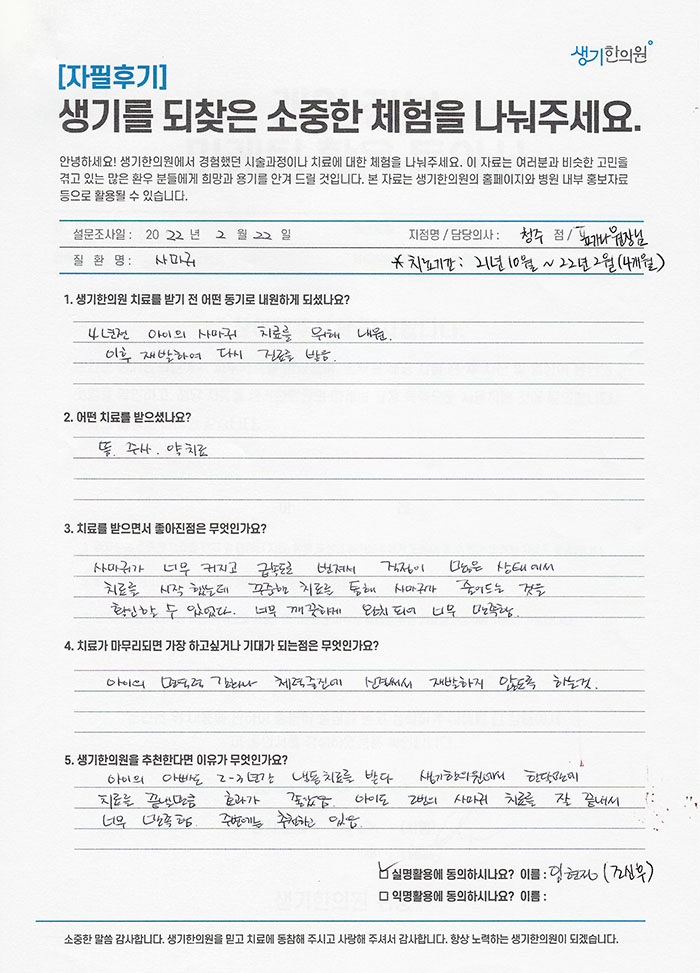 생기한의원
[자필후기]
생기를 되찾은 소중한 체험을 나눠주세요.
안녕하세요! 생기한의원에서 경험했던 시술과정이나 치료에 대한 체험을 나눠주세요. 이 자료는 여러분과 비슷한 고민을
겪고 있는 많은 환우 분들에게 희망과 용기를 안겨 드릴 것입니다. 본 자료는 생기한의원의 홈페이지와 병원 내부 홍보자료
등으로 활용될 수 있습니다.
설문조사일 : 2022 년 2 월 22 일 지점명 / 담당의사 : 청주 점 / 원장님
질 환 명 : 사마귀 * 치료기간 : 21년 10월 ~ 22년 2월 (4개월)
1. 생기한의원 치료를 받기 전 어떤 동기로 내원하게 되셨나요?
4년전 아이의 사마귀 치료를 위해 내원.
이후 재발하여 다시 진료를 받음.
2. 어떤 치료를 받으셨나요?
뜸. 주사. 약치료
3. 치료를 받으면서 좋아진점은 무엇인가요?
사마귀가 너무 커지고 급속도로 번져서 걱정이 많은 상태에서
치료를 시작했는데 꾸준한 치료를 통해 사마귀가 줄어드는 것을
확인할 수 있었다. 너무 깨끗하게 완치되어 너무 만족함.
4. 치료가 마무리되면 가장 하고싶거나 기대가 되는점은 무엇인가요?
아이의 면역력 체력증진에 신경써서 재발하지 않도록 하는것.
5. 생기한의원을 추천한다면 이유가 무엇인가요?
아이의 아빠도 2-3년간 냉동치료를 받다 생기한의원에서 한달만에
치료를 끝낼만큼 효과가 좋았음. 아이도 2번의 사마귀 치료를 잘 끝내서
너무 만족함. 주변에도 추천하고 있음.
☑ 실명활용에 동의하시나요? 이름 :
□ 익명활용에 동의하시나요? 이름 :
소중한 말씀 감사합니다. 생기한의원을 믿고 치료에 동참해 주시고 사랑해 주셔서 감사합니다. 항상 노력하는 생기한의원이 되겠습니다.